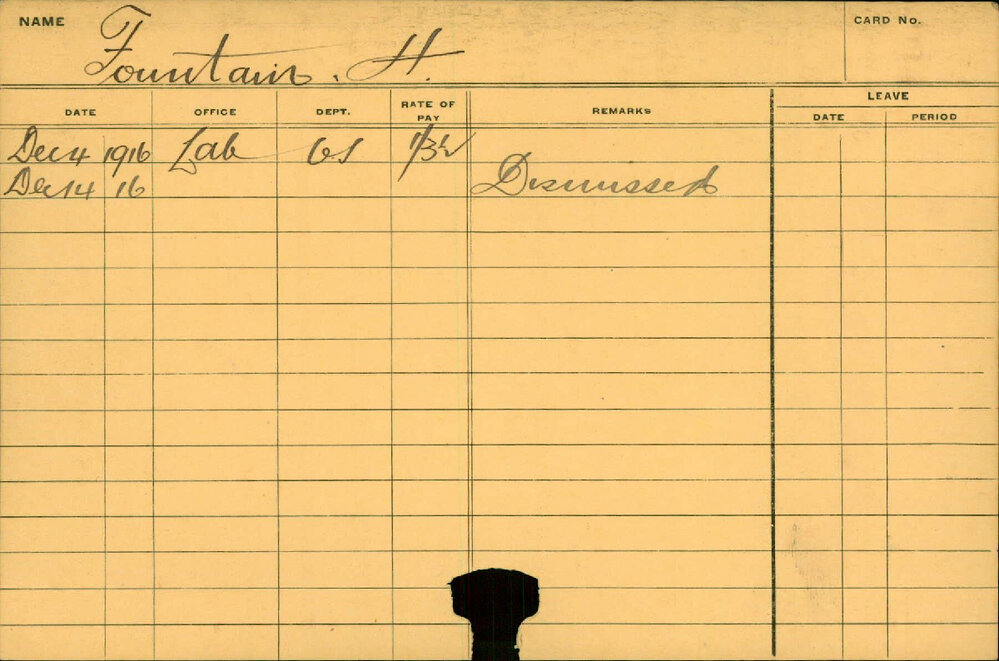 NAME Fountain. H. CARD No.
DATE OFFICE DEPT. RATE OF PAY REMARKS LEAVE
DATE PERIOD
Dec 4 1916 Lab GS
Dec 14 16 Dismissed